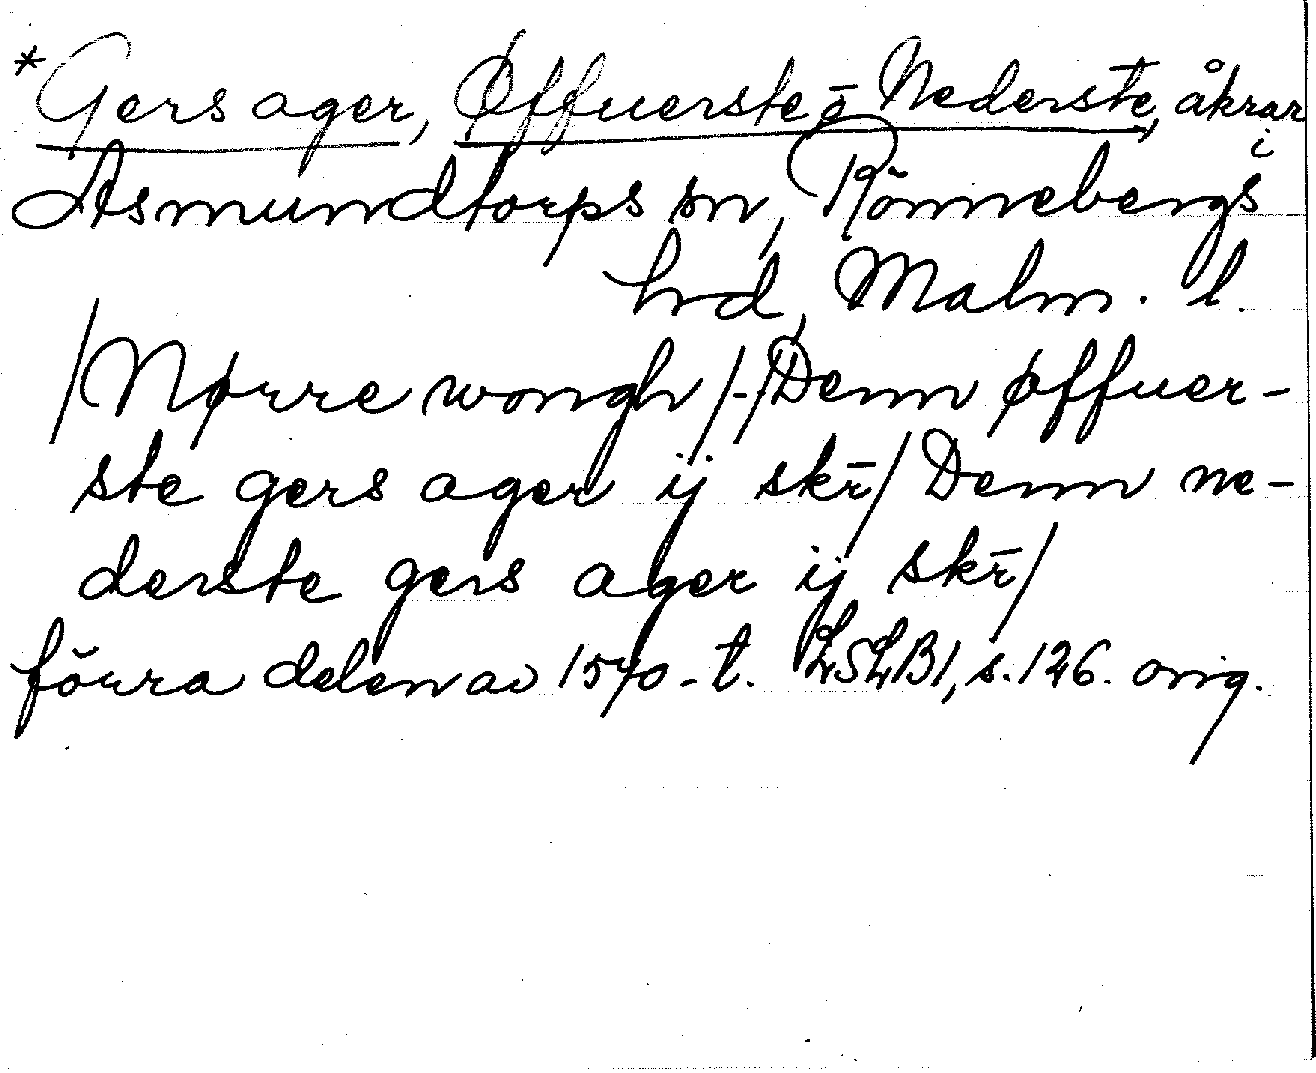 *Gers ager, Øffuerste o̅ Nederste, åkrar
i
Asmundtorps sn, Rönnebergs
hrd, Malm. l.
/Nørre wongh/-/Denn øffuer-
ste gers ager ij skr̅/ Denn ne-
derste gers ager ij skr̅/
förra delen av 1570-t. LSLB1, s. 126. orig.